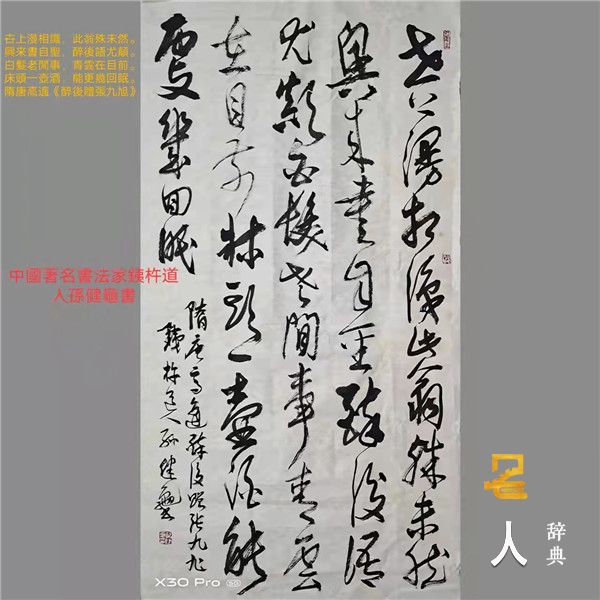 古上漫相識，此翁殊未然。
興來書自聖，醉後語尤顛。
白髮老閒事，青雲在目前。
床頭一壺酒，能更幾回眠。
隋唐高適《醉後贈張九旭》
世上漫相識此翁殊未然
興來書自聖醉後語
尤顛白髮老閒事青雲
在目前床頭一壺酒能
更幾回眠
隋唐高適醉後贈張九旭
銕杵道人孫健龜
中國著名書法家銕杵道
人孫健龜書
名人
辞典
X30 Pro 5G